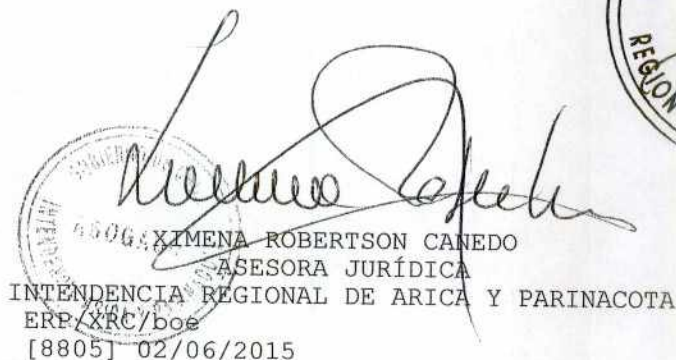 REGION
GOBIERNO
ABOGA
XIMENA ROBERTSON CANEDO
ASESORA JURÍDICA
INTENDENCIA REGIONAL DE ARICA Y PARINACOTA
ERP/XRC/boe
[8805] 02/06/2015